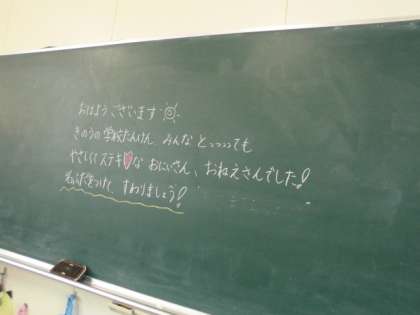 おはようございます
きのうの学校たんけん、みんな とっっっっても
やさしくて ステキ♥な おにいさん、おねえさんでした!
すわりましょう!